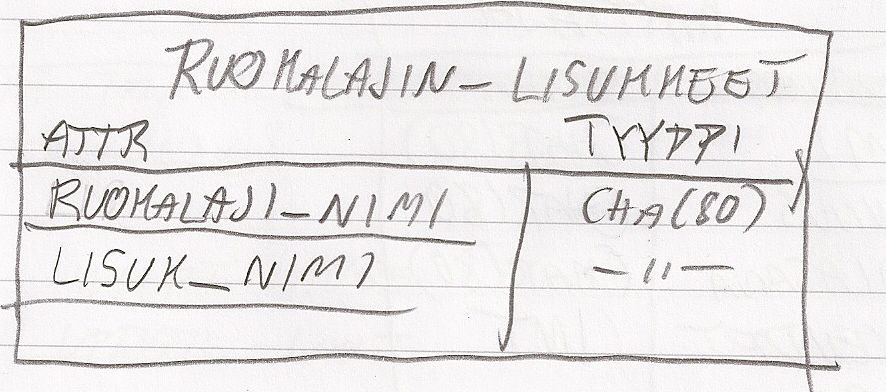 RUOKALAJIN_LISUKKEET
ATTR TYYPPI
RUOKALAJI_NIMI CHA(80)
LISUK_NIMI —〃—